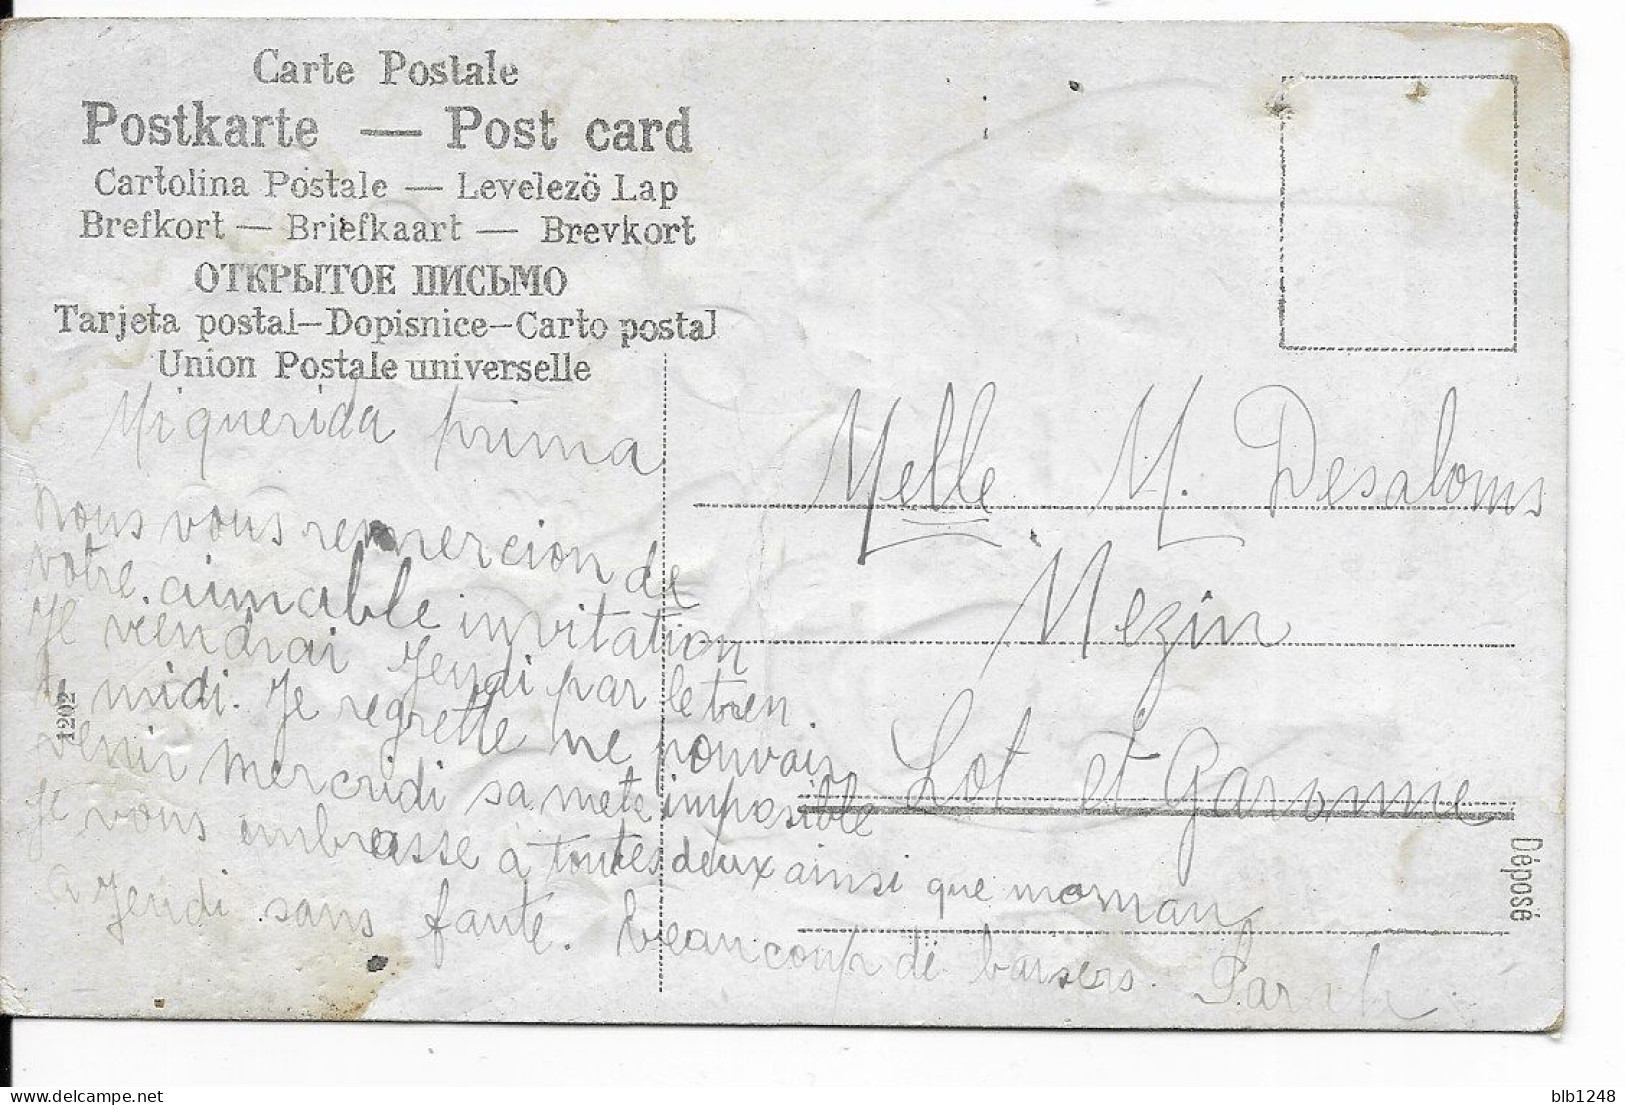 Carte Postale
Postkarte — Post card
Cartolina Postale — Levelezö Lap
Brefkort — Briefkaart — Brevkort
ОТКРЫТОЕ ПИСЬМО
Tarjeta postal—Dopisnice—Carto postal
Union Postale universelle
Mi querida prima
nous vous remercion de
votre aimable invitation
Je viendrai Jeudi par le tren
midi. Je regrette ne pouvair
venir mercridi sa mete imposible
Je vous embrasse a toutes deux ainsi que moman
a Jeudi sans fante. beaucoup de baisers. Sarah
Melle M. Desaloms
Mezin
Lot et Garonne
1202
Déposé
blb1248